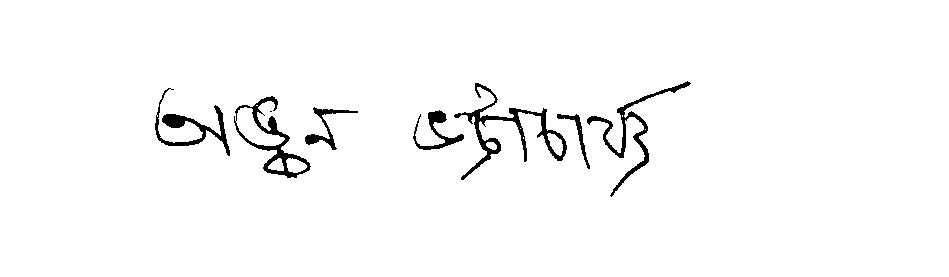 অঙ্কন ভট্টাচার্য্য